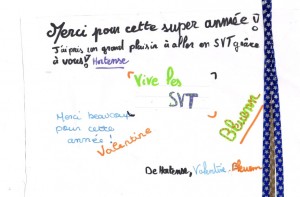 Merci pour cette super année !
J'ai pris un grand plaisir à aller en SVT grâce
à vous! Hortense
Vive les
SVT
Merci beaucoup
pour cette
année !
Valentine
De Hortense, Valentine.